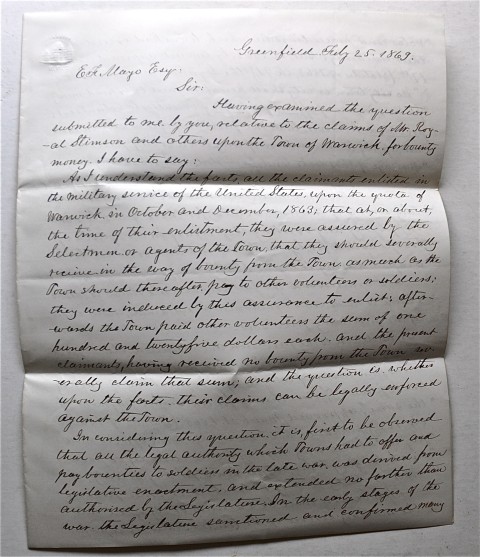 Greenfield July 25. 1869.
E. A. Mayo Esq.
Sir:
Having examined the question
submitted to me by you, relative to the claims of Mr. Roy-
al Stimson and others upon the Town of Warwick, for bounty
money. I have to say:
As I understand the facts, all the claimants enlisted in
the military service of the United States, upon the quota of
Warwick, in October and December, 1863; that at, or about,
the time of their enlistment, they were assured by the
Selectmen or agents of the Town, that they should severally
receive in the way of bounty from the Town as much as the
Town should thereafter, pay to other volunteers or soldiers;
they were induced by this assurance to enlist; after-
wards the Town paid other volunteers the sum of one
hundred and twenty five dollars each. and the present
claimants, having received no bounty from the Town sev-
erally claim that sum, and the question is, whether
upon the facts, their claims can be legally enforced
against the Town.
In considering this question, it is, first to be observed
that all the legal authority which Towns had to offer and
pay bounties to soldiers in the late war, was derived from
legislative enactment, and extended no farther than
authorised by the Legislature. In the early stages of the
war the Legislature sanctioned and confirmed many